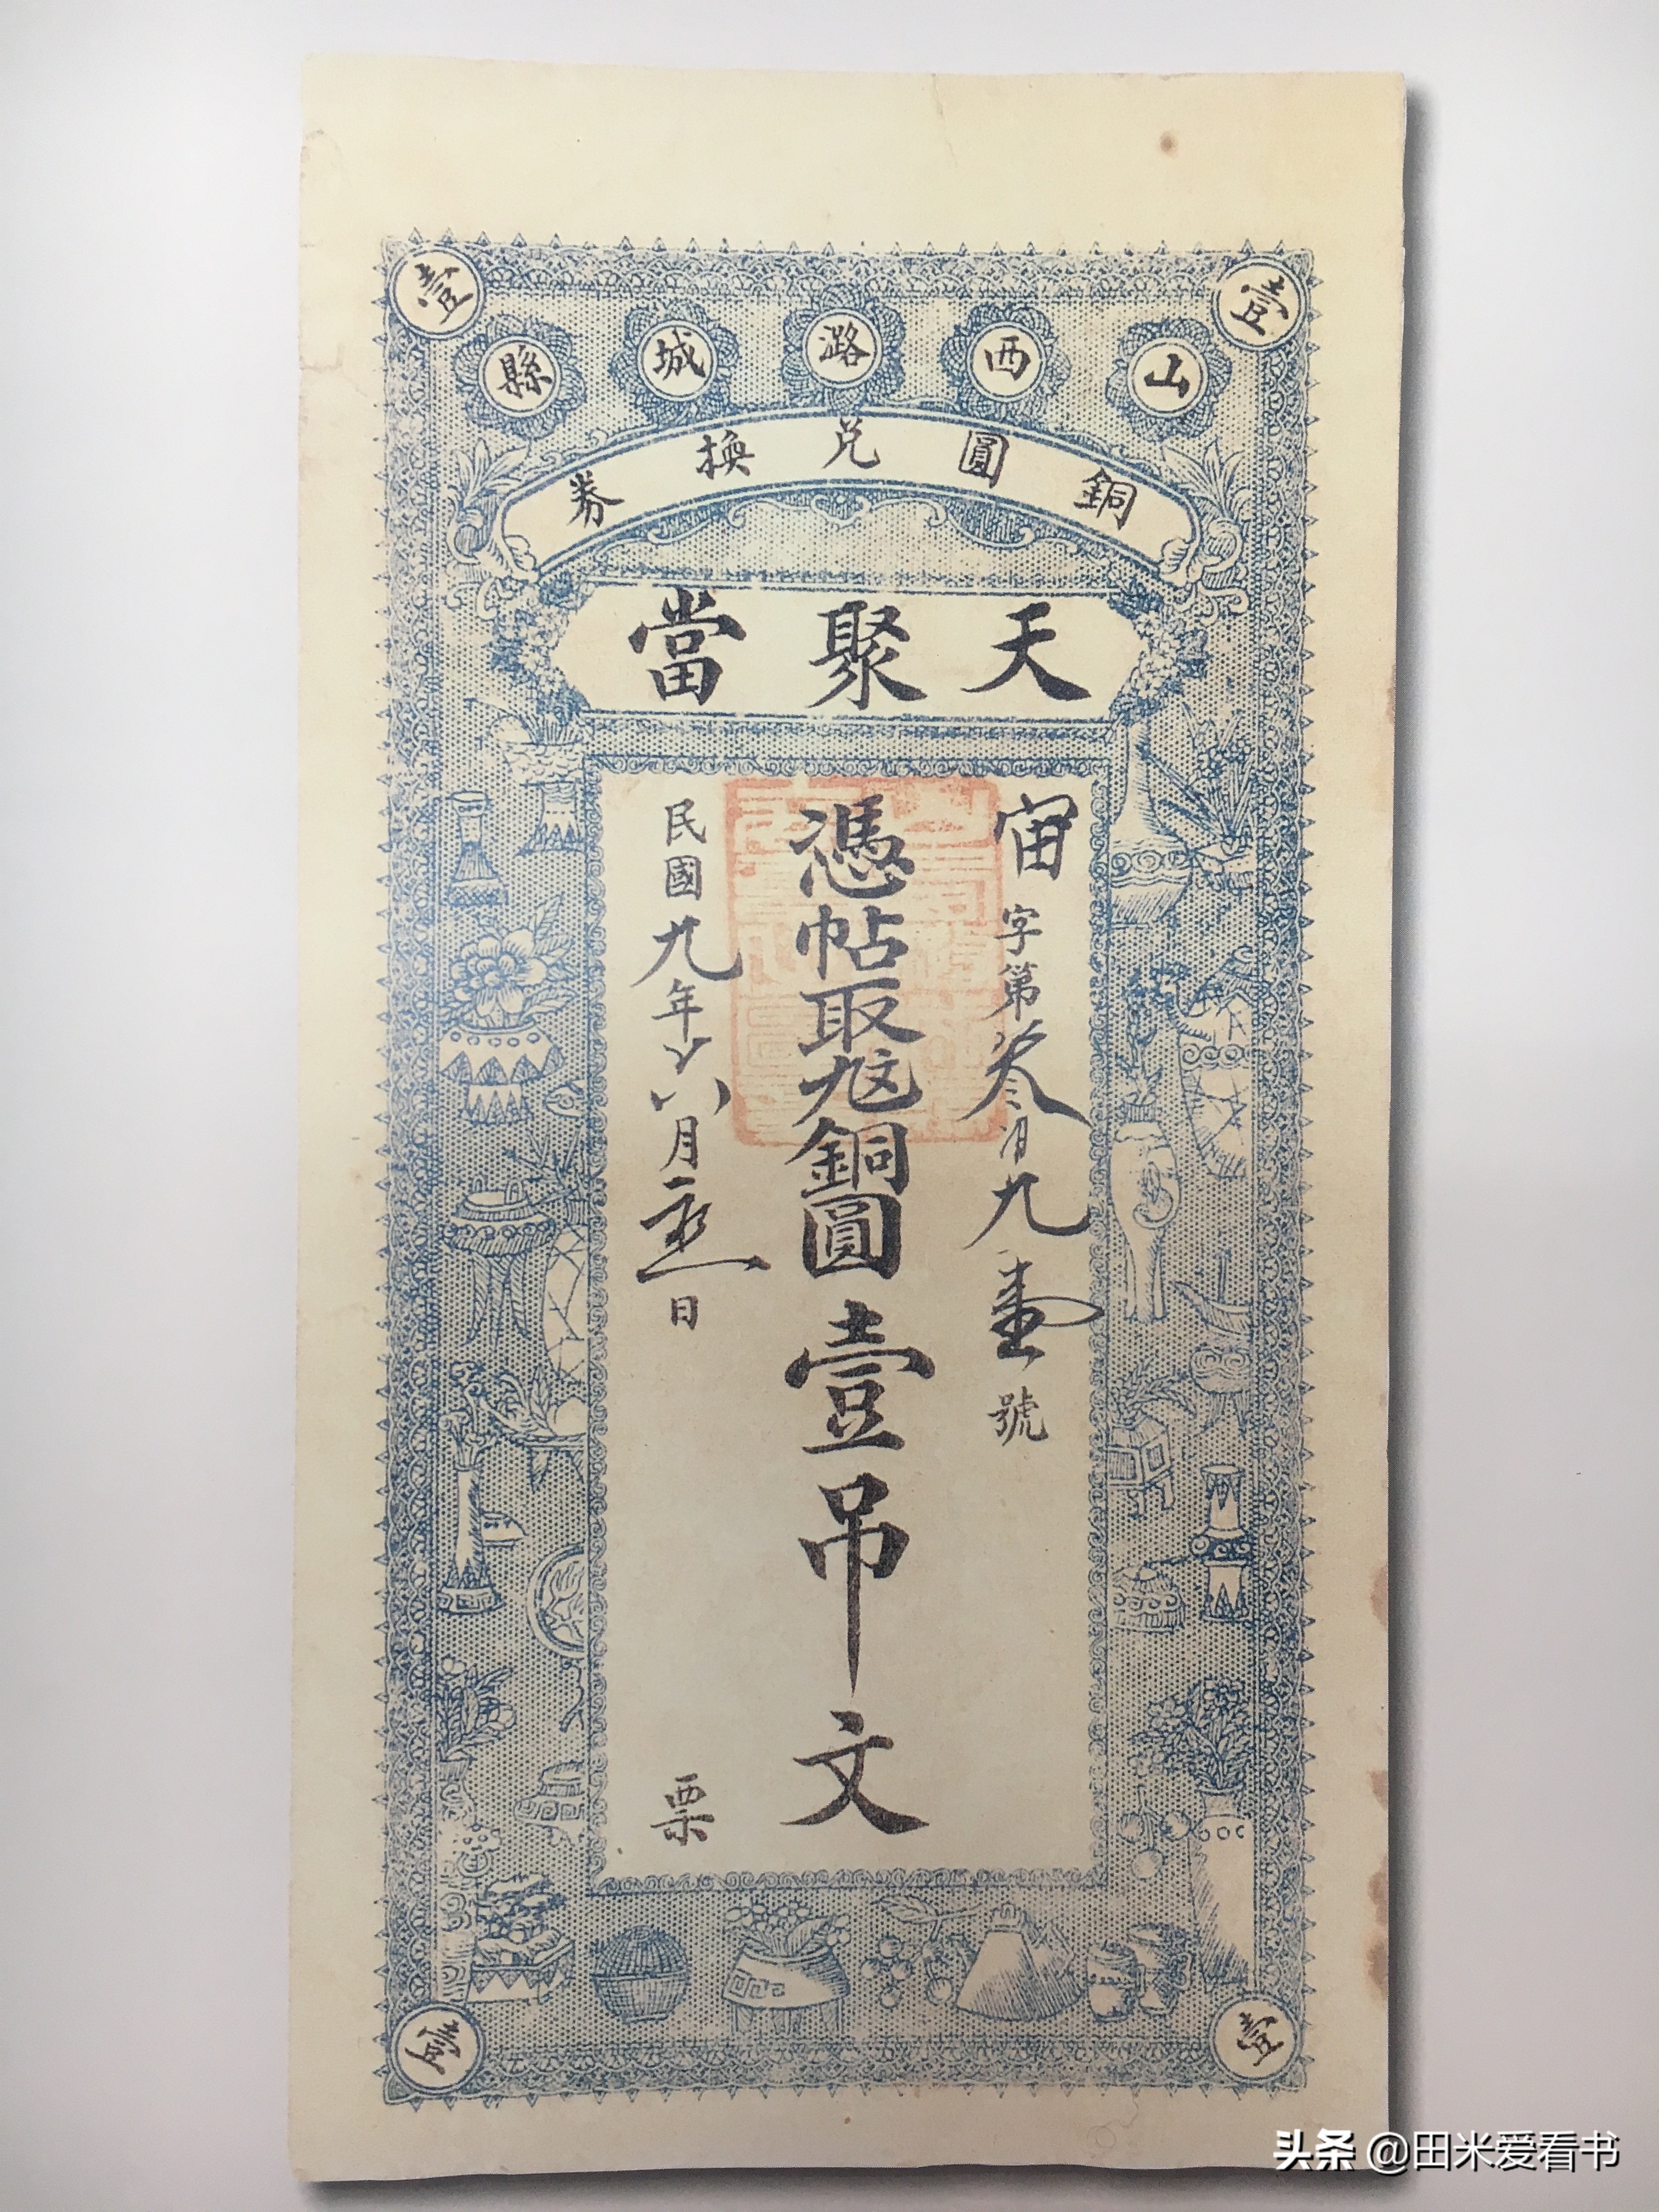 壹 壹
山西潞城縣
銅圓兌換券
天聚當
宙字第叁百九壹號
憑帖取銅圓壹吊文
民國九年 八月 日
票
壹 壹
头条 @田米爱看书